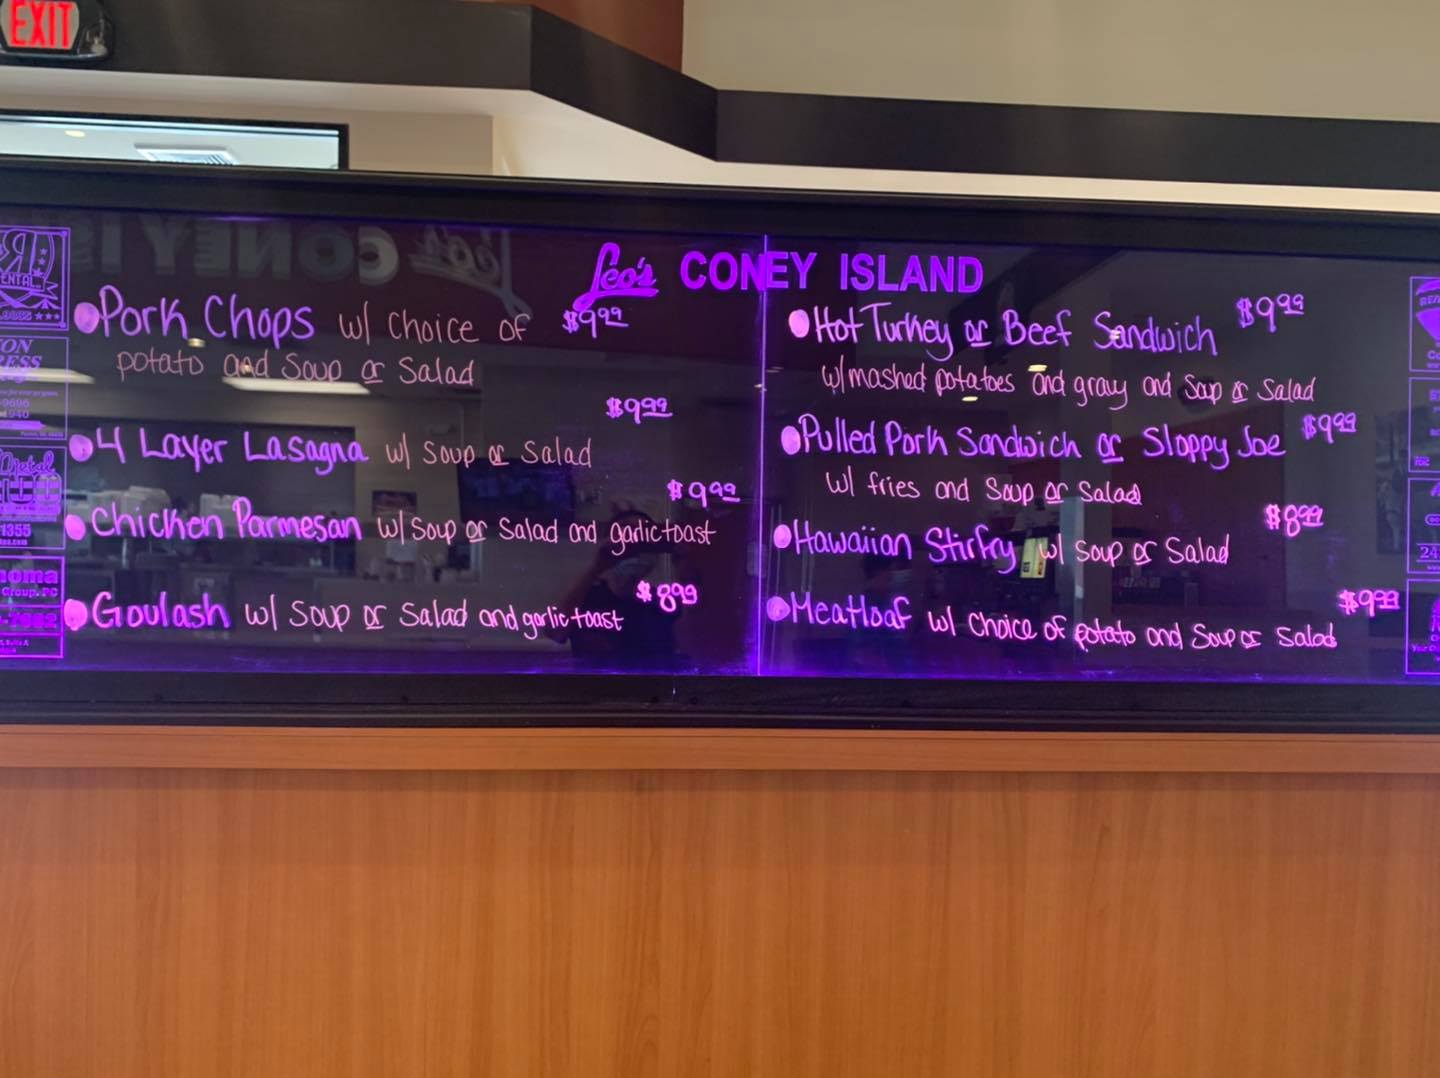 EXIT
Leo's CONEY ISLAND
Pork Chops w/ choice of $9.99
potato and Soup or Salad
$9.99
4 Layer Lasagna w/ Soup or Salad
$9.99
Chicken Parmesan w/ Soup or Salad and garlic toast
$8.99
Goulash w/ Soup or Salad and garlic toast
Hot Turkey or Beef Sandwich $9.99
w/ mashed potatoes and gravy and Soup or Salad
Pulled Pork Sandwich or Sloppy Joe $9.99
w/ fries and Soup or Salad
$8.99
Hawaiian Stirfry w/ Soup or Salad
$9.99
Meatloaf w/ choice of potato and Soup or Salad
1355
Group, PC